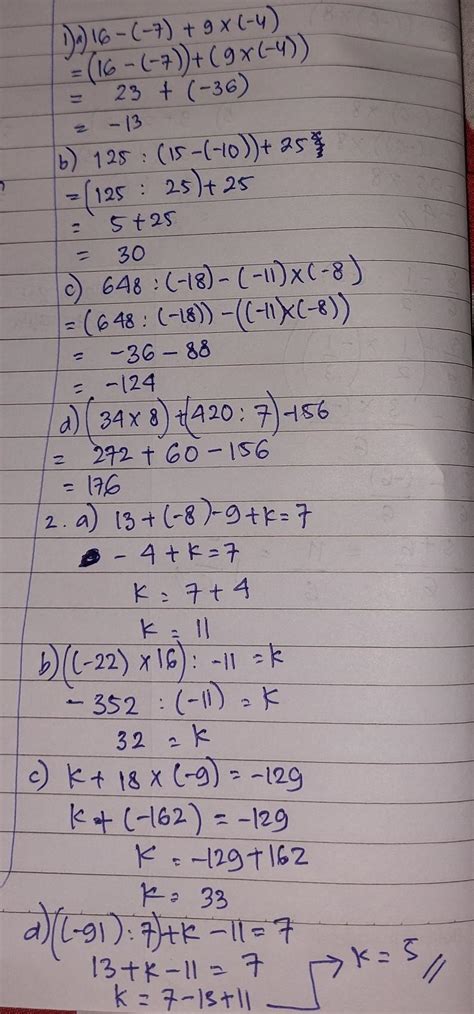 1) a) 16 - (-7) + 9 × (-4)
= (16 - (-7)) + (9 × (-4))
= 23 + (-36)
= -13
b) 125 : (15 - (-10)) + 25
= (125 : 25) + 25
= 5 + 25
= 30
c) 648 : (-18) - (-11) × (-8)
= (648 : (-18)) - ((-11) × (-8))
= -36 - 88
= -124
d) (34 × 8) + (420 : 7) - 156
= 272 + 60 - 156
= 176
2. a) 13 + (-8) - 9 + k = 7
- 4 + k = 7
k = 7 + 4
k = 11
b) ((-22) × 16) : -11 = k
- 352 : (-11) = k
32 = k
c) k + 18 × (-9) = -129
k + (-162) = -129
k = -129 + 162
k = 33
d) ((-91) : 7) + k - 11 = 7
13 + k - 11 = 7
k = 7 - 13 + 11 → k = 5 //